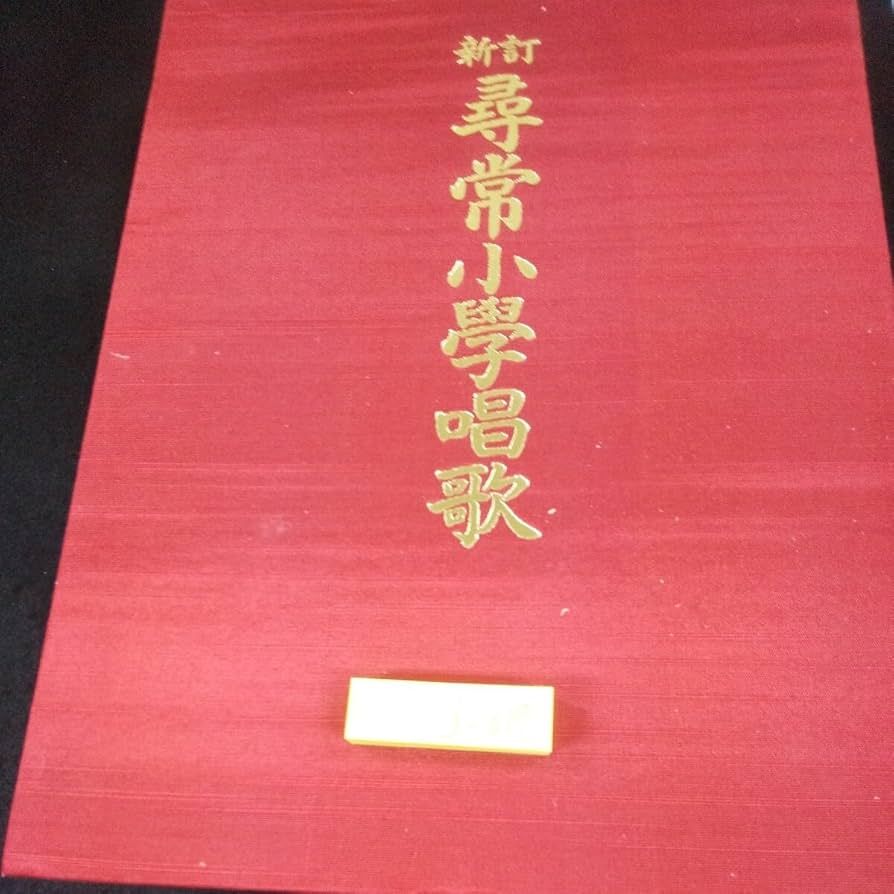 新訂
尋常小學唱歌